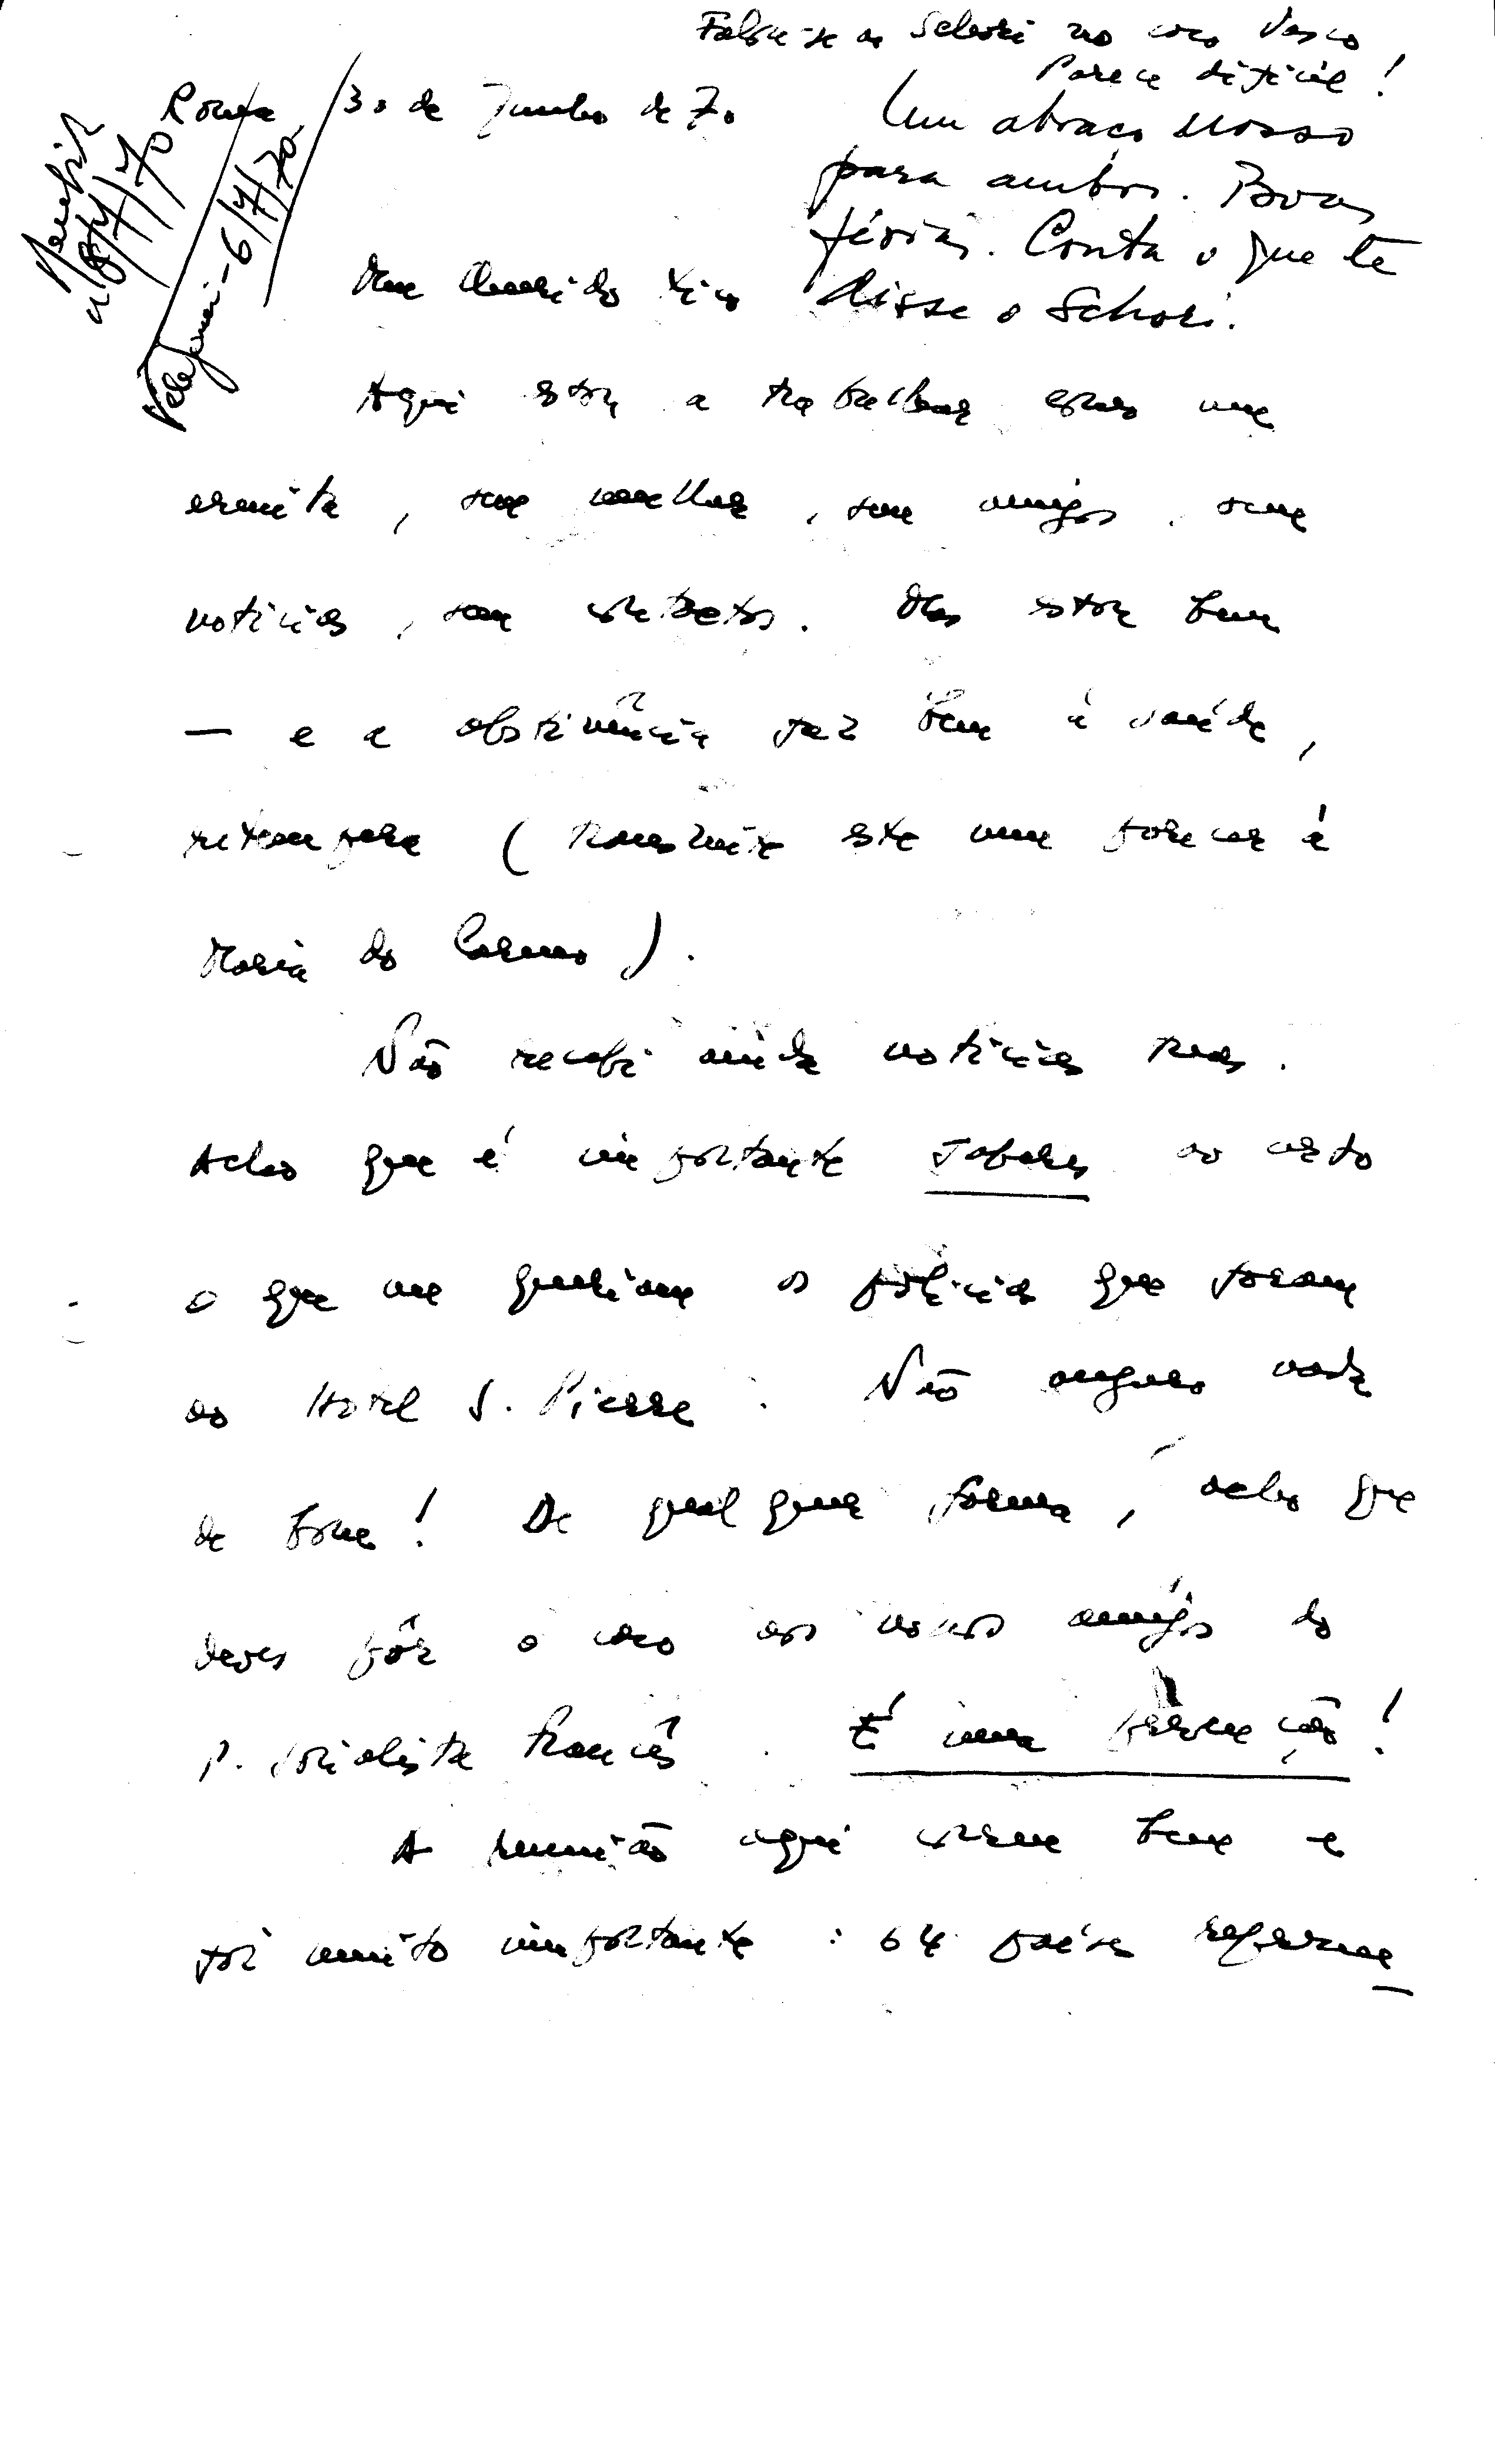 Falei-te ao Schori no caso Vasco
Parece difícil!
Um abraço nosso
para ambos. Boas
férias. Conta o que te
disse o Schori.
Recebi
a 8/7/70
Telefonei - 6/7/70
Roma, 30 de Junho de 70
Meu Querido Tito
Aqui estou a trabalhar como um
ermita, sem mulher, sem amigos, sem
notícias, sem contactos. Mas estou bem
— e a abstinência faz bem à saúde,
retempera (transmite este meu parecer à
Maria do Carmo).
Não recebi ainda notícias tuas.
Acho que é importante saberes ao certo
o que me queriam os polícias que foram
ao Hotel S. Pierre. Não auguro nada
de bom! De qualquer forma, acho que
deves pôr o caso aos nossos amigos do
P. Socialista francês. É uma precaução!
A reunião aqui correu bem e
foi muito importante: 64 países represen-